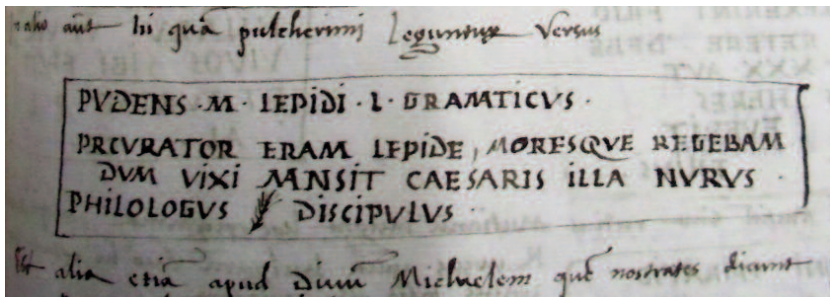 alio aūt hi quā pulcherimi Leguntur Versus
PVDENS · M · LEPIDI · L · GRAMTICVS ·
PRCVRATOR ERAM LEPIDE, MORESQVE REGEBAM
DVM VIXI MNSIT CAESARIS ILLA NVRVS ·
PHILOLOGVS DISCIPVLVS ·
Est alia etiā apud Divū Michaelem quē nostrates dicunt